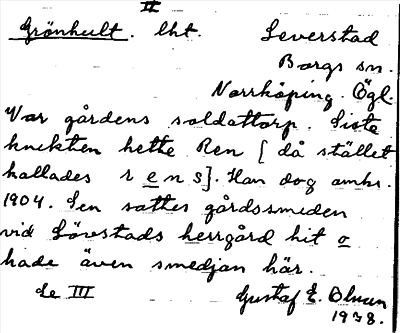 II
Grönhult. lht. Leverstad
Borgs sn.
Norrköping. Ögl.
Var gårdens soldattorp. Siste
knekten hette Ren [ då stället
kallades r e n s]. Han dog omkr.
1904. Sen sattes gårdssmeden
vid Lövstads herrgård hit o
hade även smedjan här.
Se III Gustaf E.
1938.